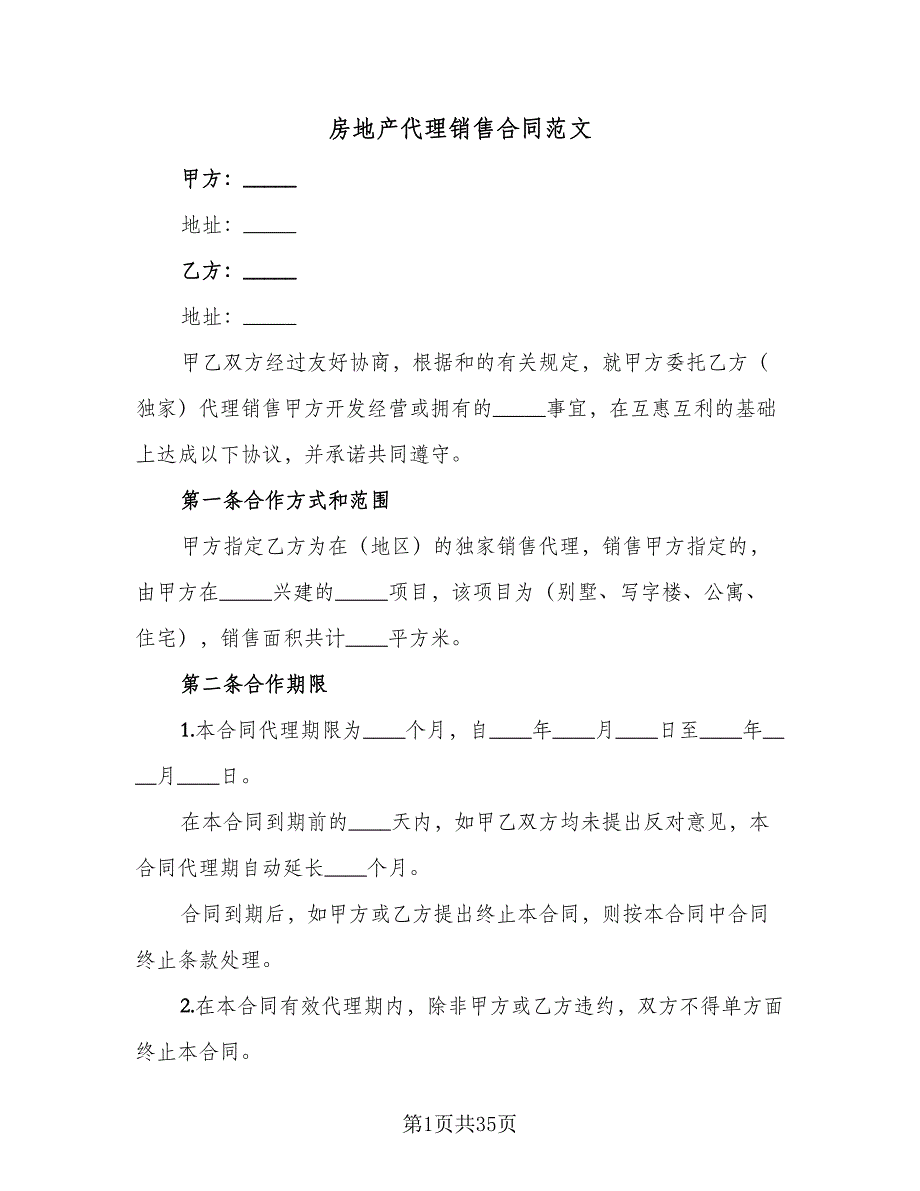 房地产代理销售合同范文
甲方：_____
地址：_____
乙方：_____
地址：_____
甲乙双方经过友好协商，根据和的有关规定，就甲方委托乙方（
独家）代理销售甲方开发经营或拥有的_____事宜，在互惠互利的基础
上达成以下协议，并承诺共同遵守。
第一条合作方式和范围
甲方指定乙方为在（地区）的独家销售代理，销售甲方指定的，
由甲方在_____兴建的_____项目，该项目为（别墅、写字楼、公寓、
住宅），销售面积共计____平方米。
第二条合作期限
1.本合同代理期限为____个月，自____年____月____日至____年__
__月____日。
在本合同到期前的____天内，如甲乙双方均未提出反对意见，本
合同代理期自动延长____个月。
合同到期后，如甲方或乙方提出终止本合同，则按本合同中合同
终止条款处理。
2.在本合同有效代理期内，除非甲方或乙方违约，双方不得单方面
终止本合同。
第1页共35页